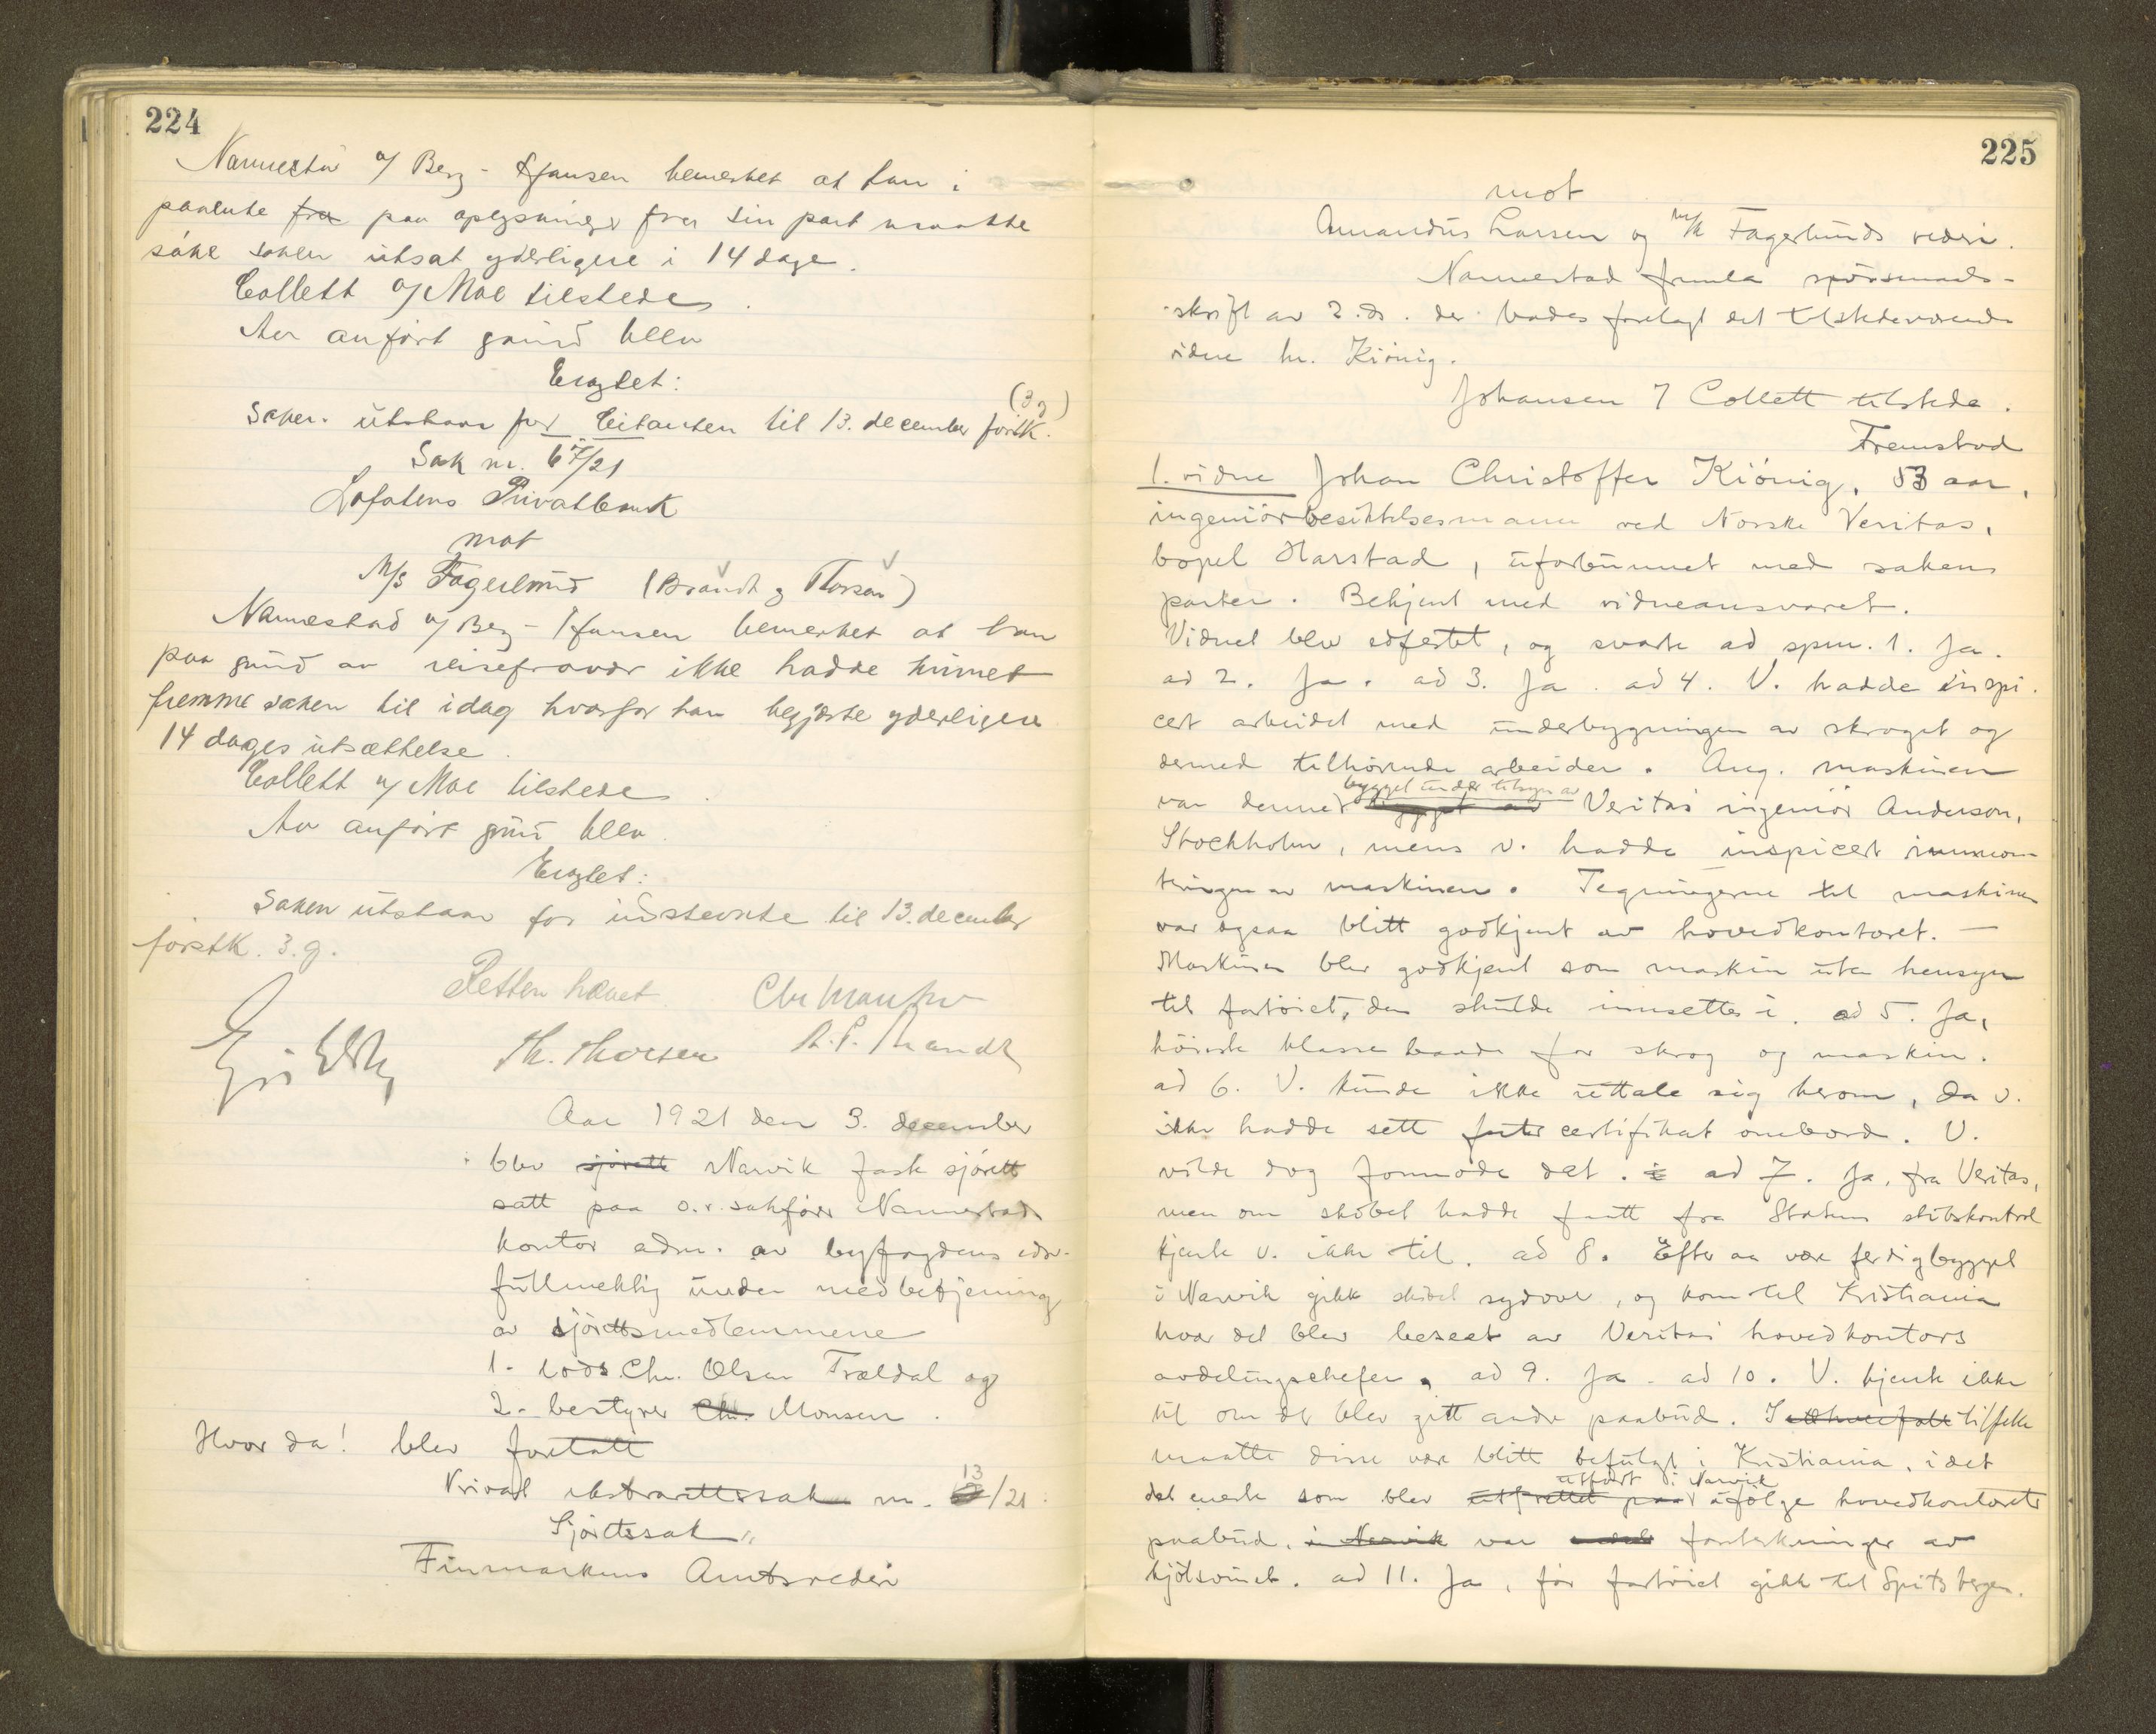 224
Nannestad v/ Berg-Hansen bemerket at han i
paavente fra paa oplysninger fra sin part maatte
søke saken utsat yderligere i 14 dage.
Collett v/ Moe tilstede.
Av anført grund blev
Eragtet:
Saken utstaar for Citanten til 13. december førstk. (3g)
Sak nr. 67/21
Lofotens Privatbank
mot
M/S Fagerlund (Brandt og Thorsen)
Nannestad v/ Berg-Hansen bemerket at han
paa grund av reisefravær ikke hadde kunnet
fremme saken til idag hvorfor han begjærte yderligere
14 dages utsættelse.
Collett v/ Moe tilstede.
Av anført grund blev
Eragtet:
Saken utstaar for indstevnte til 13. december
førstk. 3.g.
Retten hævet
Th. Thorsen
Aar 1921 den 3. december
blev sjørett Narvik fask sjørett
satt paa o.r.sakfører Nannestads
kontor adm. av byfogdens edsv.
fullmektig under medbetjening
av sjørettsmedlemmene
1. lods Chr. Olsen Trældal og
2. bestyrer Chr. Monsen.
Hvor da! blev foretatt
Privat ekstrarettssak nr. 13/21.
Sjørettssak
Finmarkens Amtsrederi
225
mot
Amandus Larsen og m/k Fagerlunds rederi.
Nannestad fremla spørsmaals-
skrift av 2. ds. der bades forelagt det tilstedeværende
vidne hr. Kiønig.
Johansen f Collett tilstede.
Fremstod
1. vidne Johan Christoffer Kiønig, 53 aar,
ingeniør besiktelsesmann ved Norske Veritas,
bopel Harstad, uforbunnet med sakens
parter. Bekjent med vidneansvaret.
Vidnet blev edfestet, og svarte ad spm. 1. Ja.
ad 2. Ja. ad 3. Ja. ad 4. V. hadde inspi-
cert arbeidet med underbygningen av skroget og
dermed tilhørende arbeider. Ang. maskinen
var denne bygget under tilsyn av bygget av Veritas' ingeniør Anderson,
Stockholm, mens v. hadde inspicert innmon-
teringen av maskinen. Tegningerne til maskinen
var ogsaa blitt godkjent av hovedkontoret. —
Maskinen blev godkjent som maskin uten hensyn
til fartøiet, den skulde innsettes i. ad 5. Ja,
høieste klasse baade for skrog og maskin.
ad 6. V. kunde ikke uttale sig herom, da v.
ikke hadde sett certifikat ombord. V.
vilde dog formode det. ad 7. Ja, fra Veritas,
men om skibet hadde faatt fra Statens skibskontrol
kjente v. ikke til. ad 8. Efter aa være ferdigbygget
i Narvik gikk skibet sydover, og kom til Kristiania
hvor det blev beseet av Veritas' hovedkontors
avdelingschefer. ad 9. Ja. ad 10. V. kjente ikke
til om det blev gitt andre paabud. I ethvert fald tilfelle
maatte disse være blitt befulgt i Kristiania, idet
det eneste som blev utfrettet paa utført i Narvik ifølge hovedkontorets
paabud, i Narvik var forsterkninger av
kjølsvinet. ad 11. Ja, før fartøiet gikk til Spitsbergen.